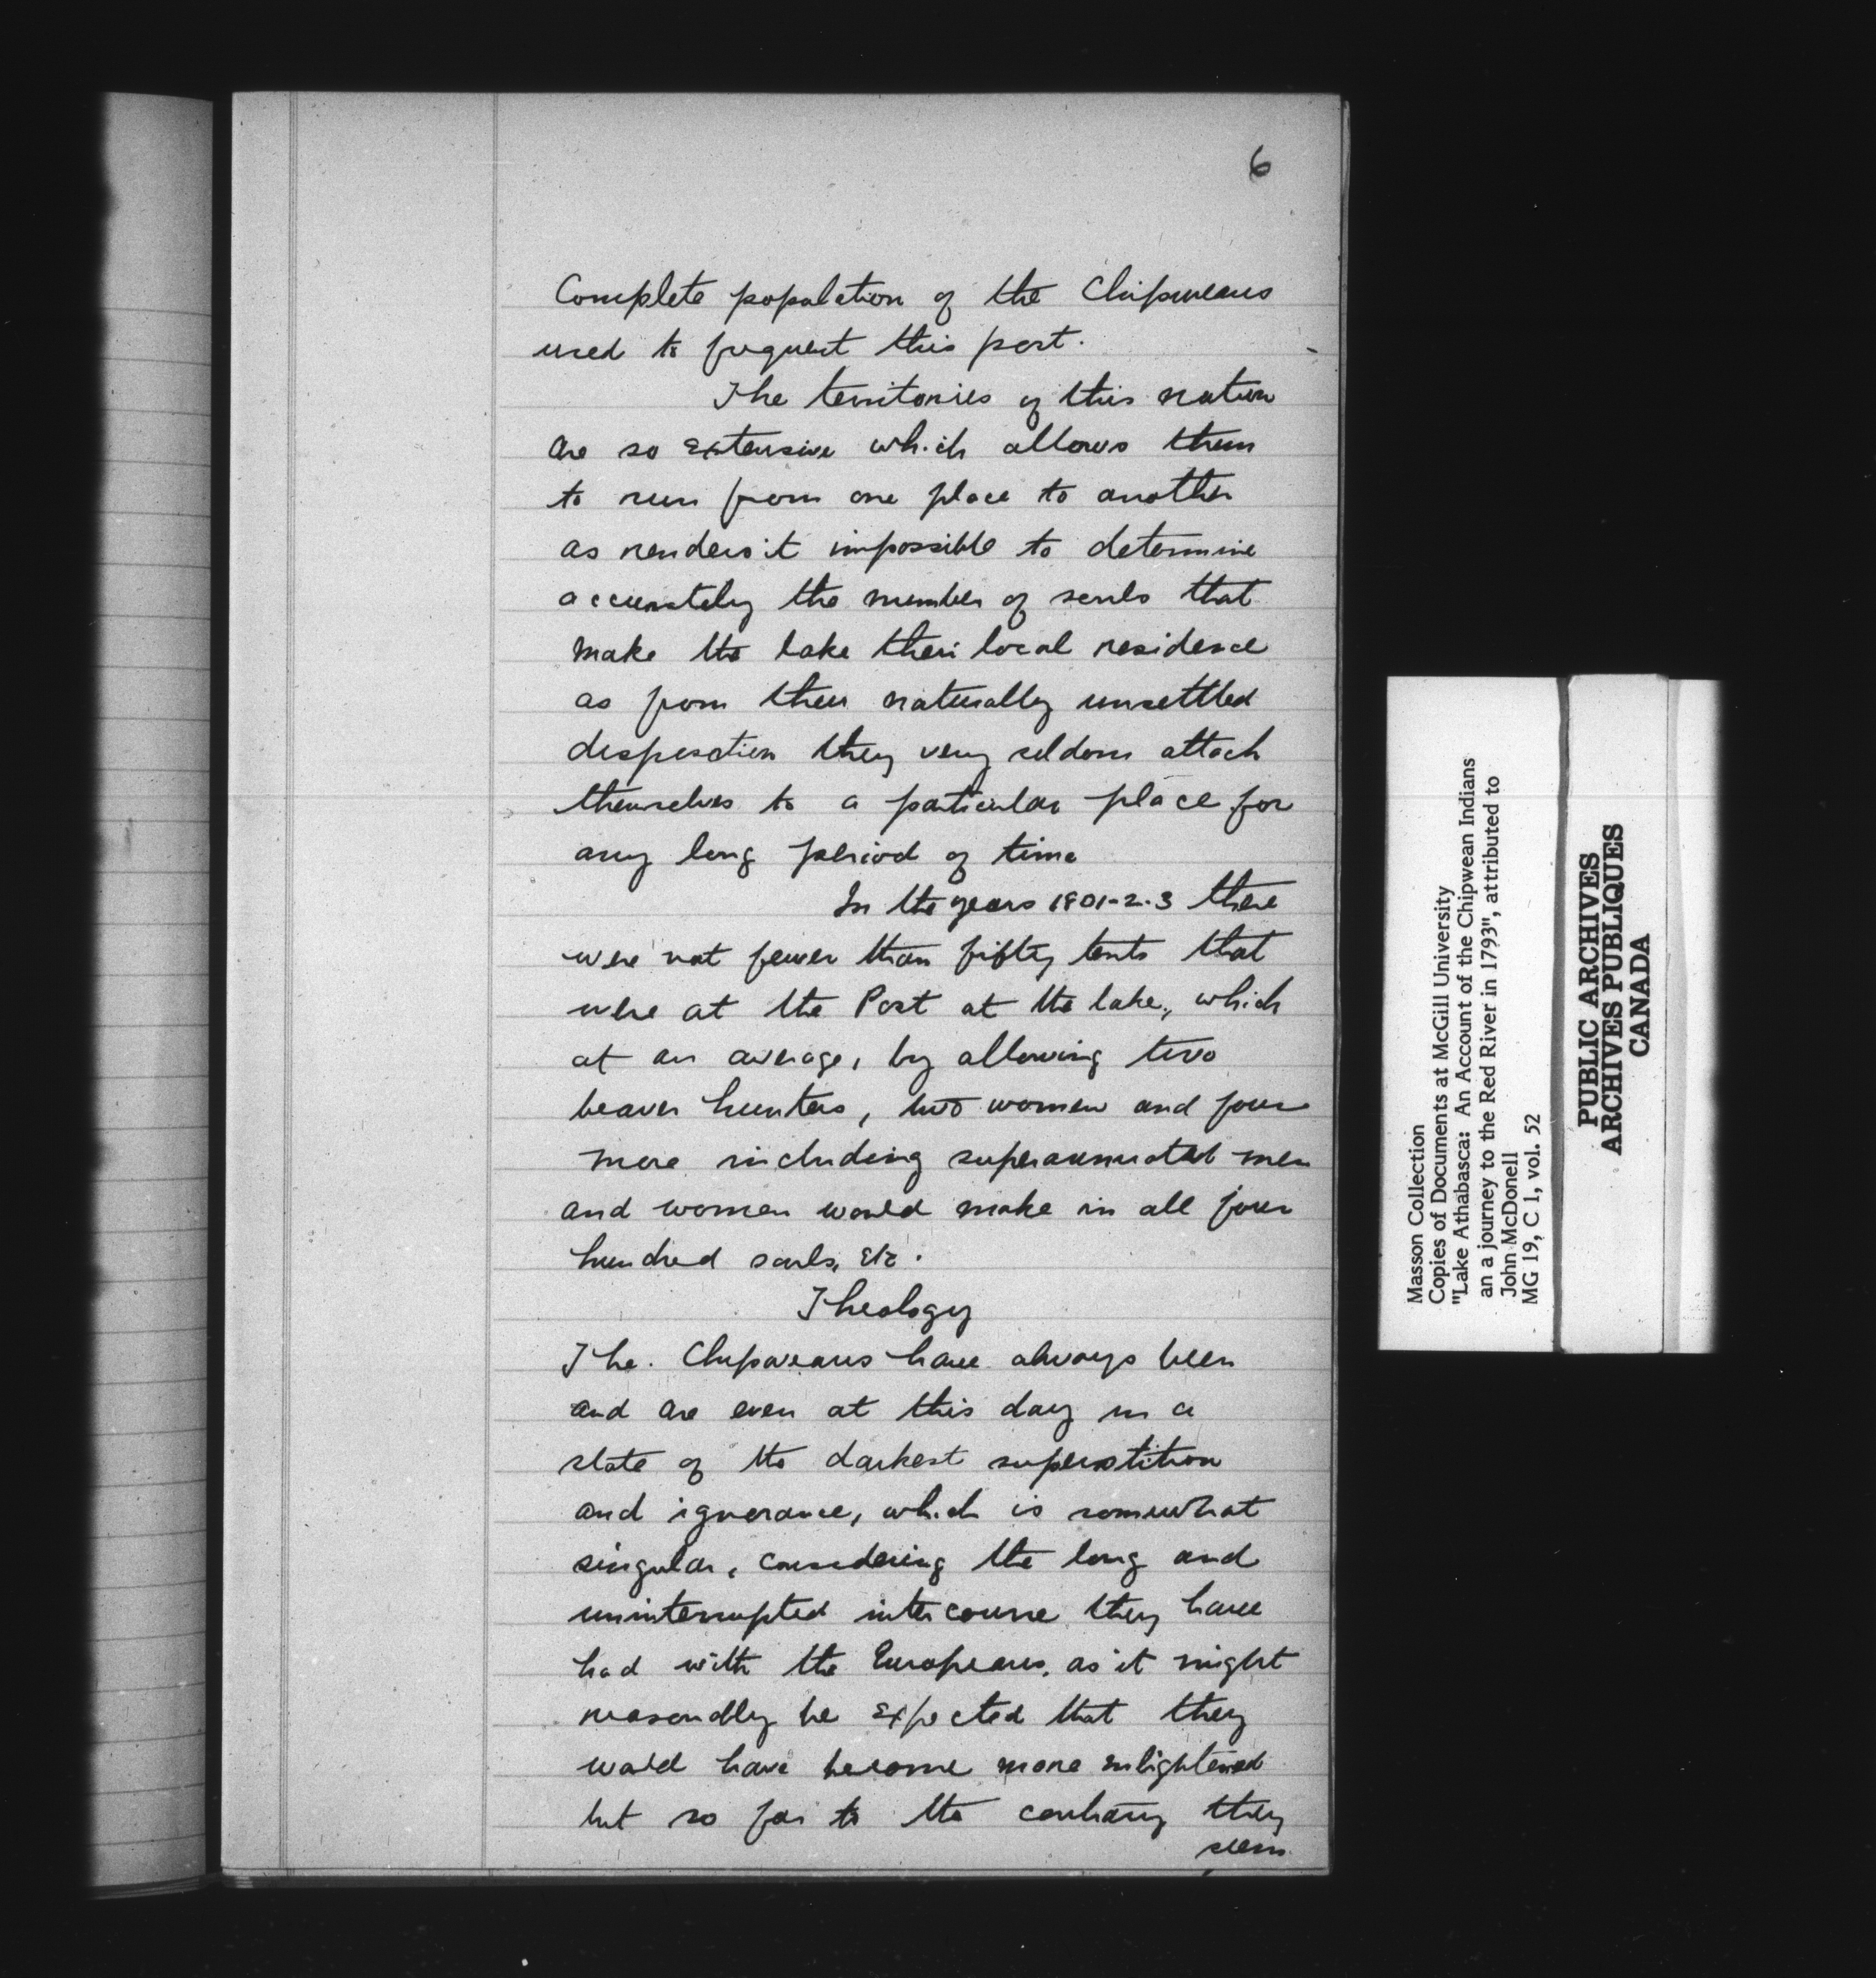 6
Complete population of the Chipweans
used to frequent this port.
The territories of this nation
are so extensive which allows them
to run from one place to another
as renders it impossible to determine
accurately the number of souls that
make the lake their local residence
as from their naturally unsettled
disposition they very seldom attach
themselves to a particular place for
any long period of time
In the years 1801-2-3 there
were not fewer than fifty tents that
were at the Post at the lake, which
at an average, by allowing two
beaver hunters, two women and four
more including superannuated men
and women would make in all four
hundred souls, etc.
Theology
The Chipweans have always been
and are even at this day in a
state of the darkest superstition
and ignorance, which is somewhat
singular, considering the long and
uninterrupted intercourse they have
had with the Europeans, as it might
reasonably be expected that they
would have become more enlightened
but so far to the contrary they
seem
Masson Collection
Copies of Documents at McGill University
"Lake Athabasca: An Account of the Chipwean Indians
an a journey to the Red River in 1793", attributed to
John McDonell
MG 19, C 1, vol. 52
PUBLIC ARCHIVES
ARCHIVES PUBLIQUES
CANADA